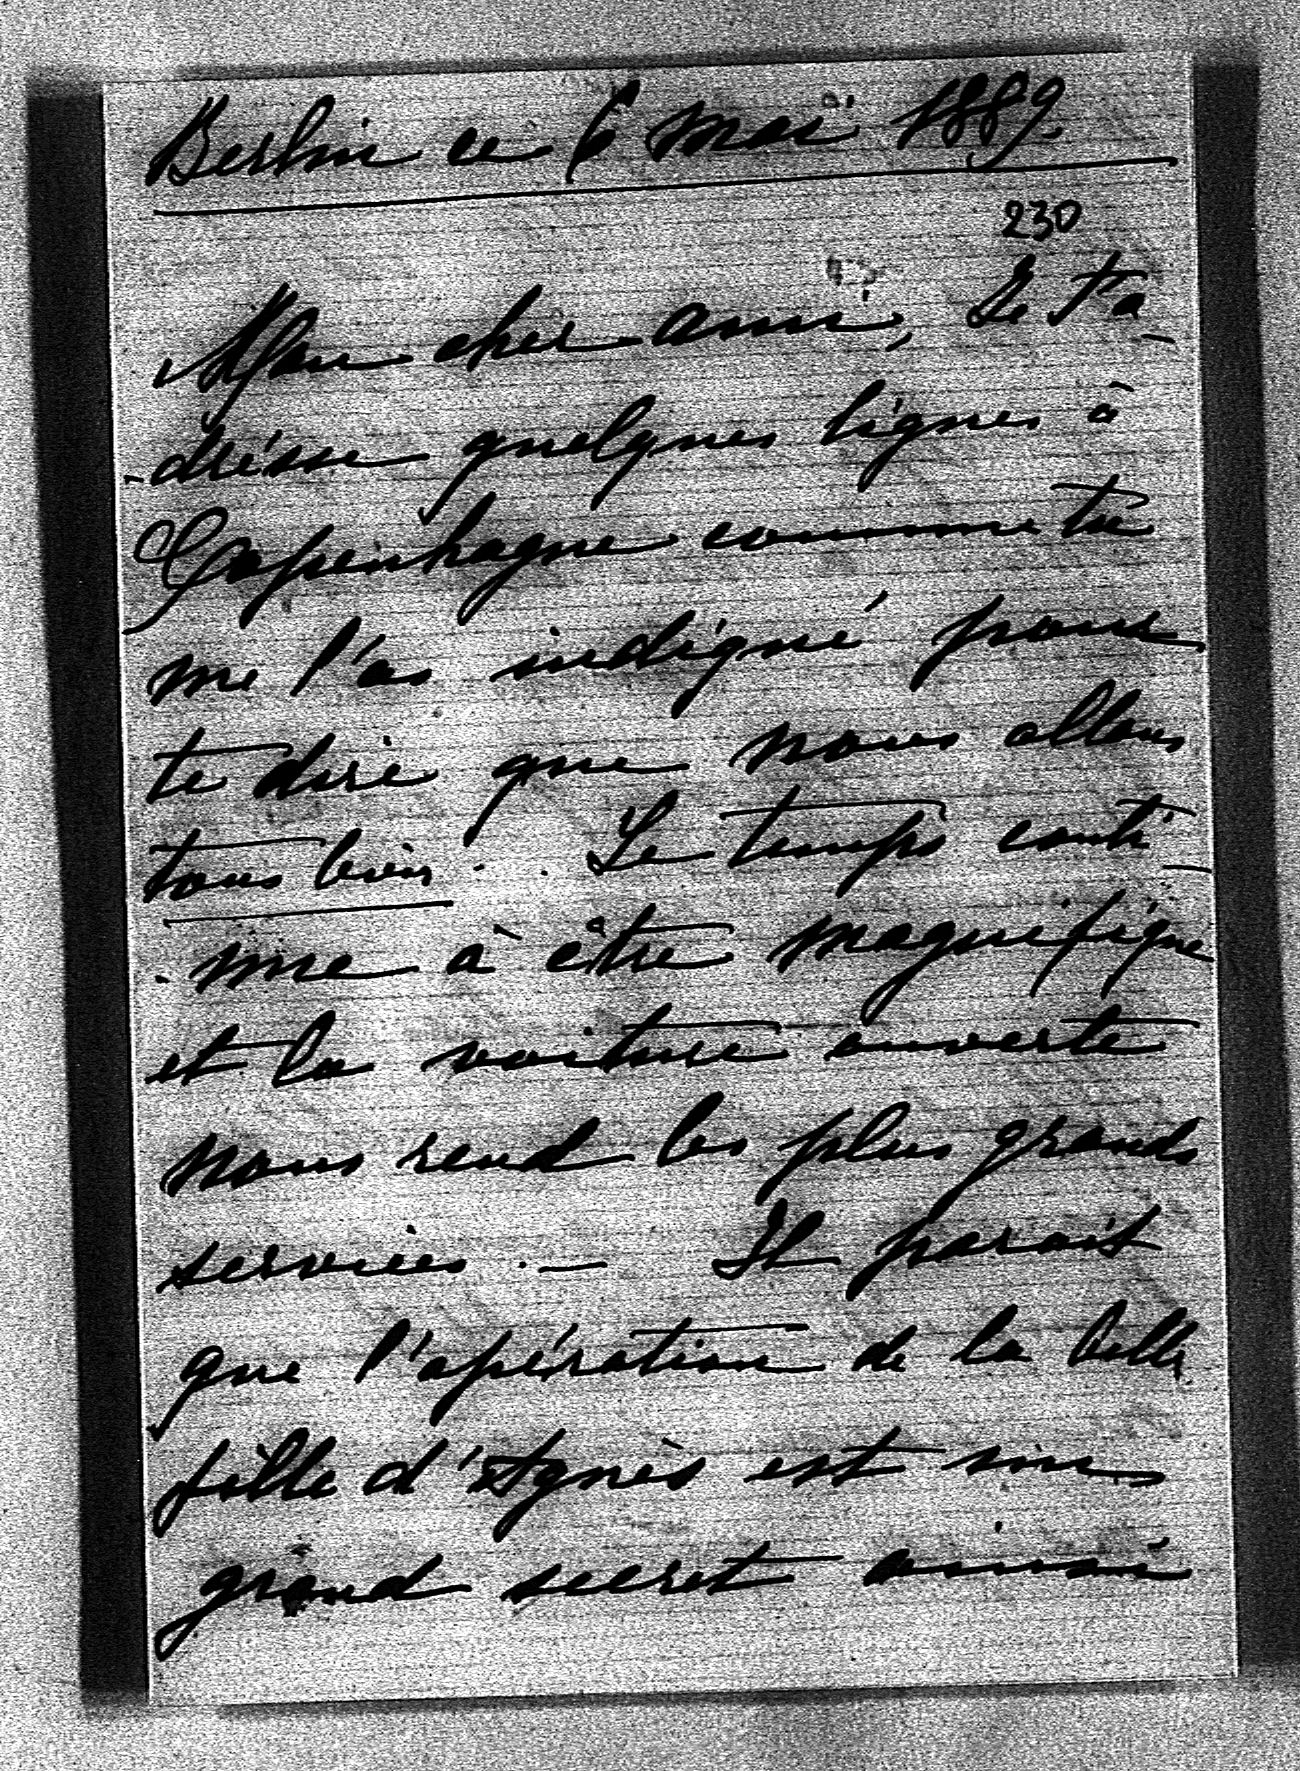 Berlin ce 6 mai 1889.
230
Mon cher ami, Je t'a-
-dresse quelques lignes à
Copenhague comme tu
me l'as indiqué pour
te dire que nous allons
tous bien. Le temps conti-
-nue à être magnifique
et la voiture ouverte
nous rend les plus grands
services. — Il parait
que l'opération de la belle
fille d'Agnès est un
grand secret aussi